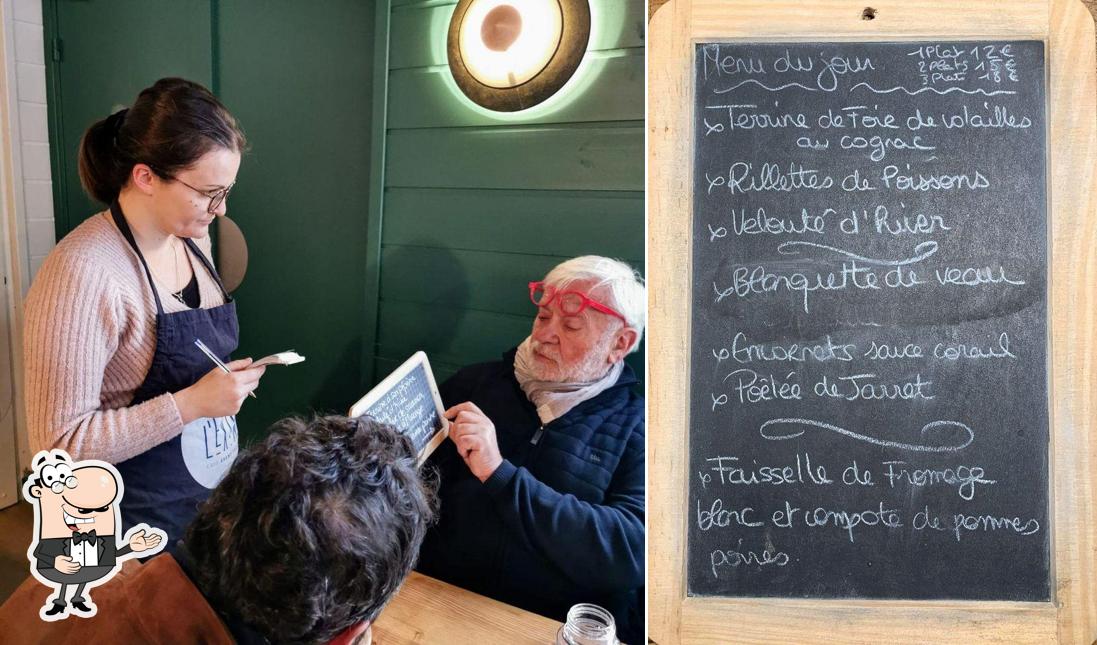 L'EX
Menu du jour
1 Plat 12€
2 Plats 15€
3 Plat 18€
Terrine de Foie de volailles
au cognac
Rillettes de Poissons
Velouté d'hiver
Blanquette de veau
Encornets sauce corail
Poêlée de Jarret
Faisselle de Fromage
blanc et compote de pommes
poires